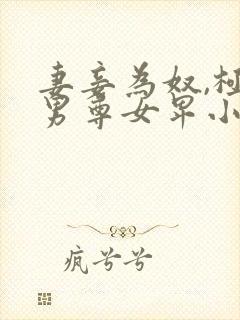 妻妾為奴,
男尊女卑小
疯兮兮